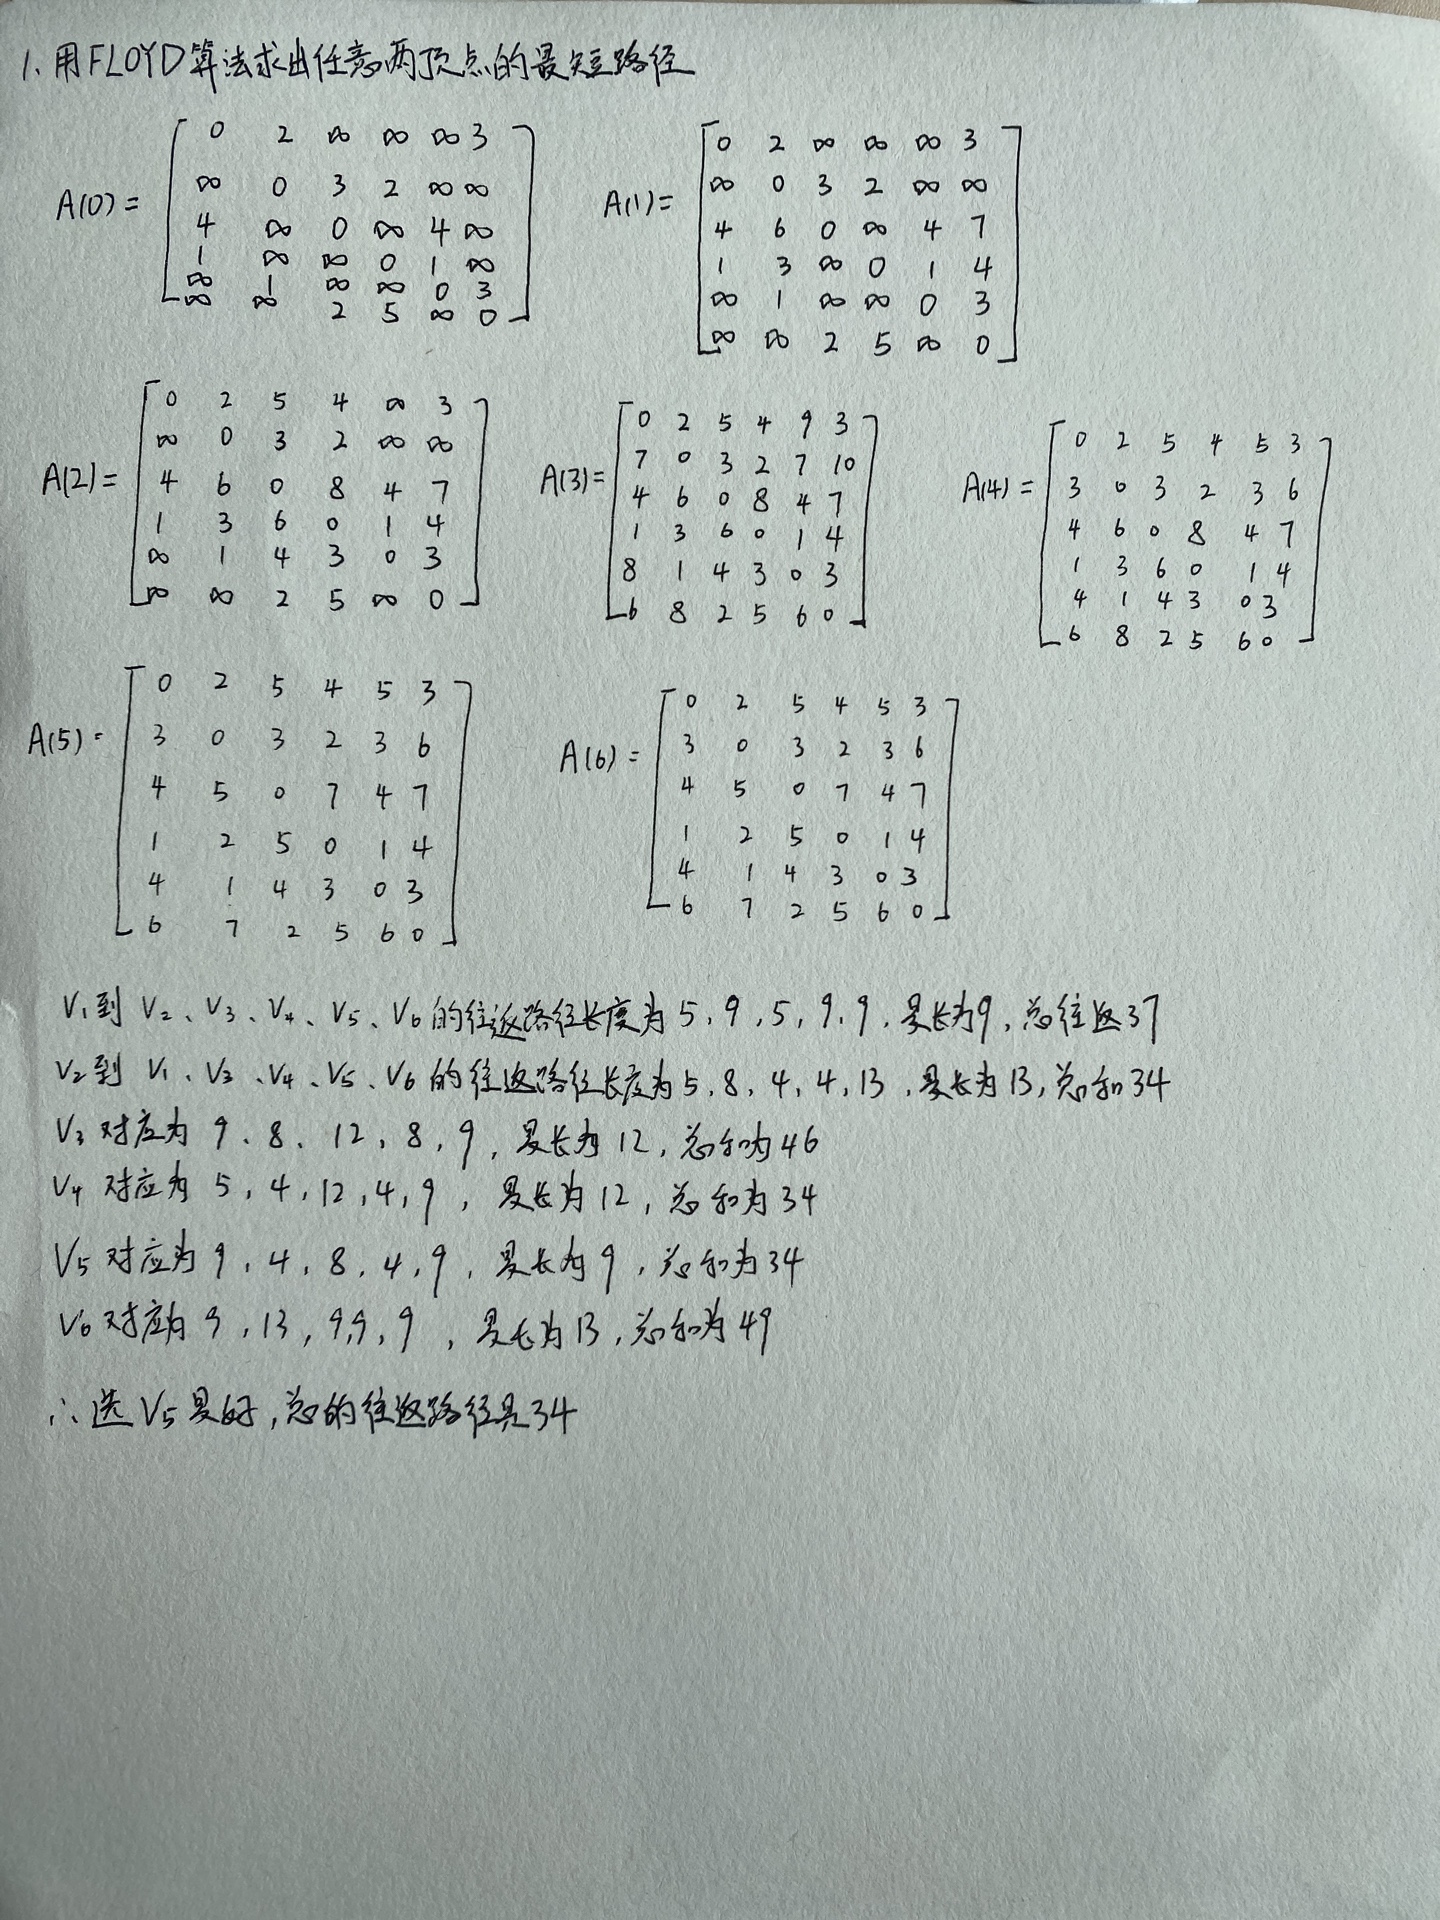 1. 用FLOYD算法求出任意两顶点的最短路径
A(0)=
0 2 ∞ ∞ ∞ 3
∞ 0 3 2 ∞ ∞
4 ∞ 0 ∞ 4 ∞
1 ∞ ∞ 0 1 ∞
∞ 1 ∞ ∞ 0 3
∞ ∞ 2 5 ∞ 0
A(1)=
0 2 ∞ ∞ ∞ 3
∞ 0 3 2 ∞ ∞
4 6 0 ∞ 4 7
1 3 ∞ 0 1 4
∞ 1 ∞ ∞ 0 3
∞ ∞ 2 5 ∞ 0
A(2)=
0 2 5 4 ∞ 3
∞ 0 3 2 ∞ ∞
4 6 0 8 4 7
1 3 6 0 1 4
∞ 1 4 3 0 3
∞ ∞ 2 5 ∞ 0
A(3)=
0 2 5 4 9 3
7 0 3 2 7 10
4 6 0 8 4 7
1 3 6 0 1 4
8 1 4 3 0 3
6 8 2 5 6 0
A(4)=
0 2 5 4 5 3
3 0 3 2 3 6
4 6 0 8 4 7
1 3 6 0 1 4
4 1 4 3 0 3
6 8 2 5 6 0
A(5)=
0 2 5 4 5 3
3 0 3 2 3 6
4 5 0 7 4 7
1 2 5 0 1 4
4 1 4 3 0 3
6 7 2 5 6 0
A(6)=
0 2 5 4 5 3
3 0 3 2 3 6
4 5 0 7 4 7
1 2 5 0 1 4
4 1 4 3 0 3
6 7 2 5 6 0
V1到 V2、V3、V4、V5、V6的往返路径长度为5, 9, 5, 9, 9, 最长为9, 总往返37
V2到 V1、V3、V4、V5、V6的往返路径长度为5, 8, 4, 4, 13, 最长为13, 总和34
V3对应为 9、8、12, 8, 9, 最长为12, 总和为46
V4对应为 5, 4, 12, 4, 9, 最长为12, 总和为34
V5对应为9, 4, 8, 4, 9, 最长为9, 总和为34
V6对应为 9, 13, 9, 9, 9, 最长为13, 总和为49
∴选V5最好, 总的往返路径是34